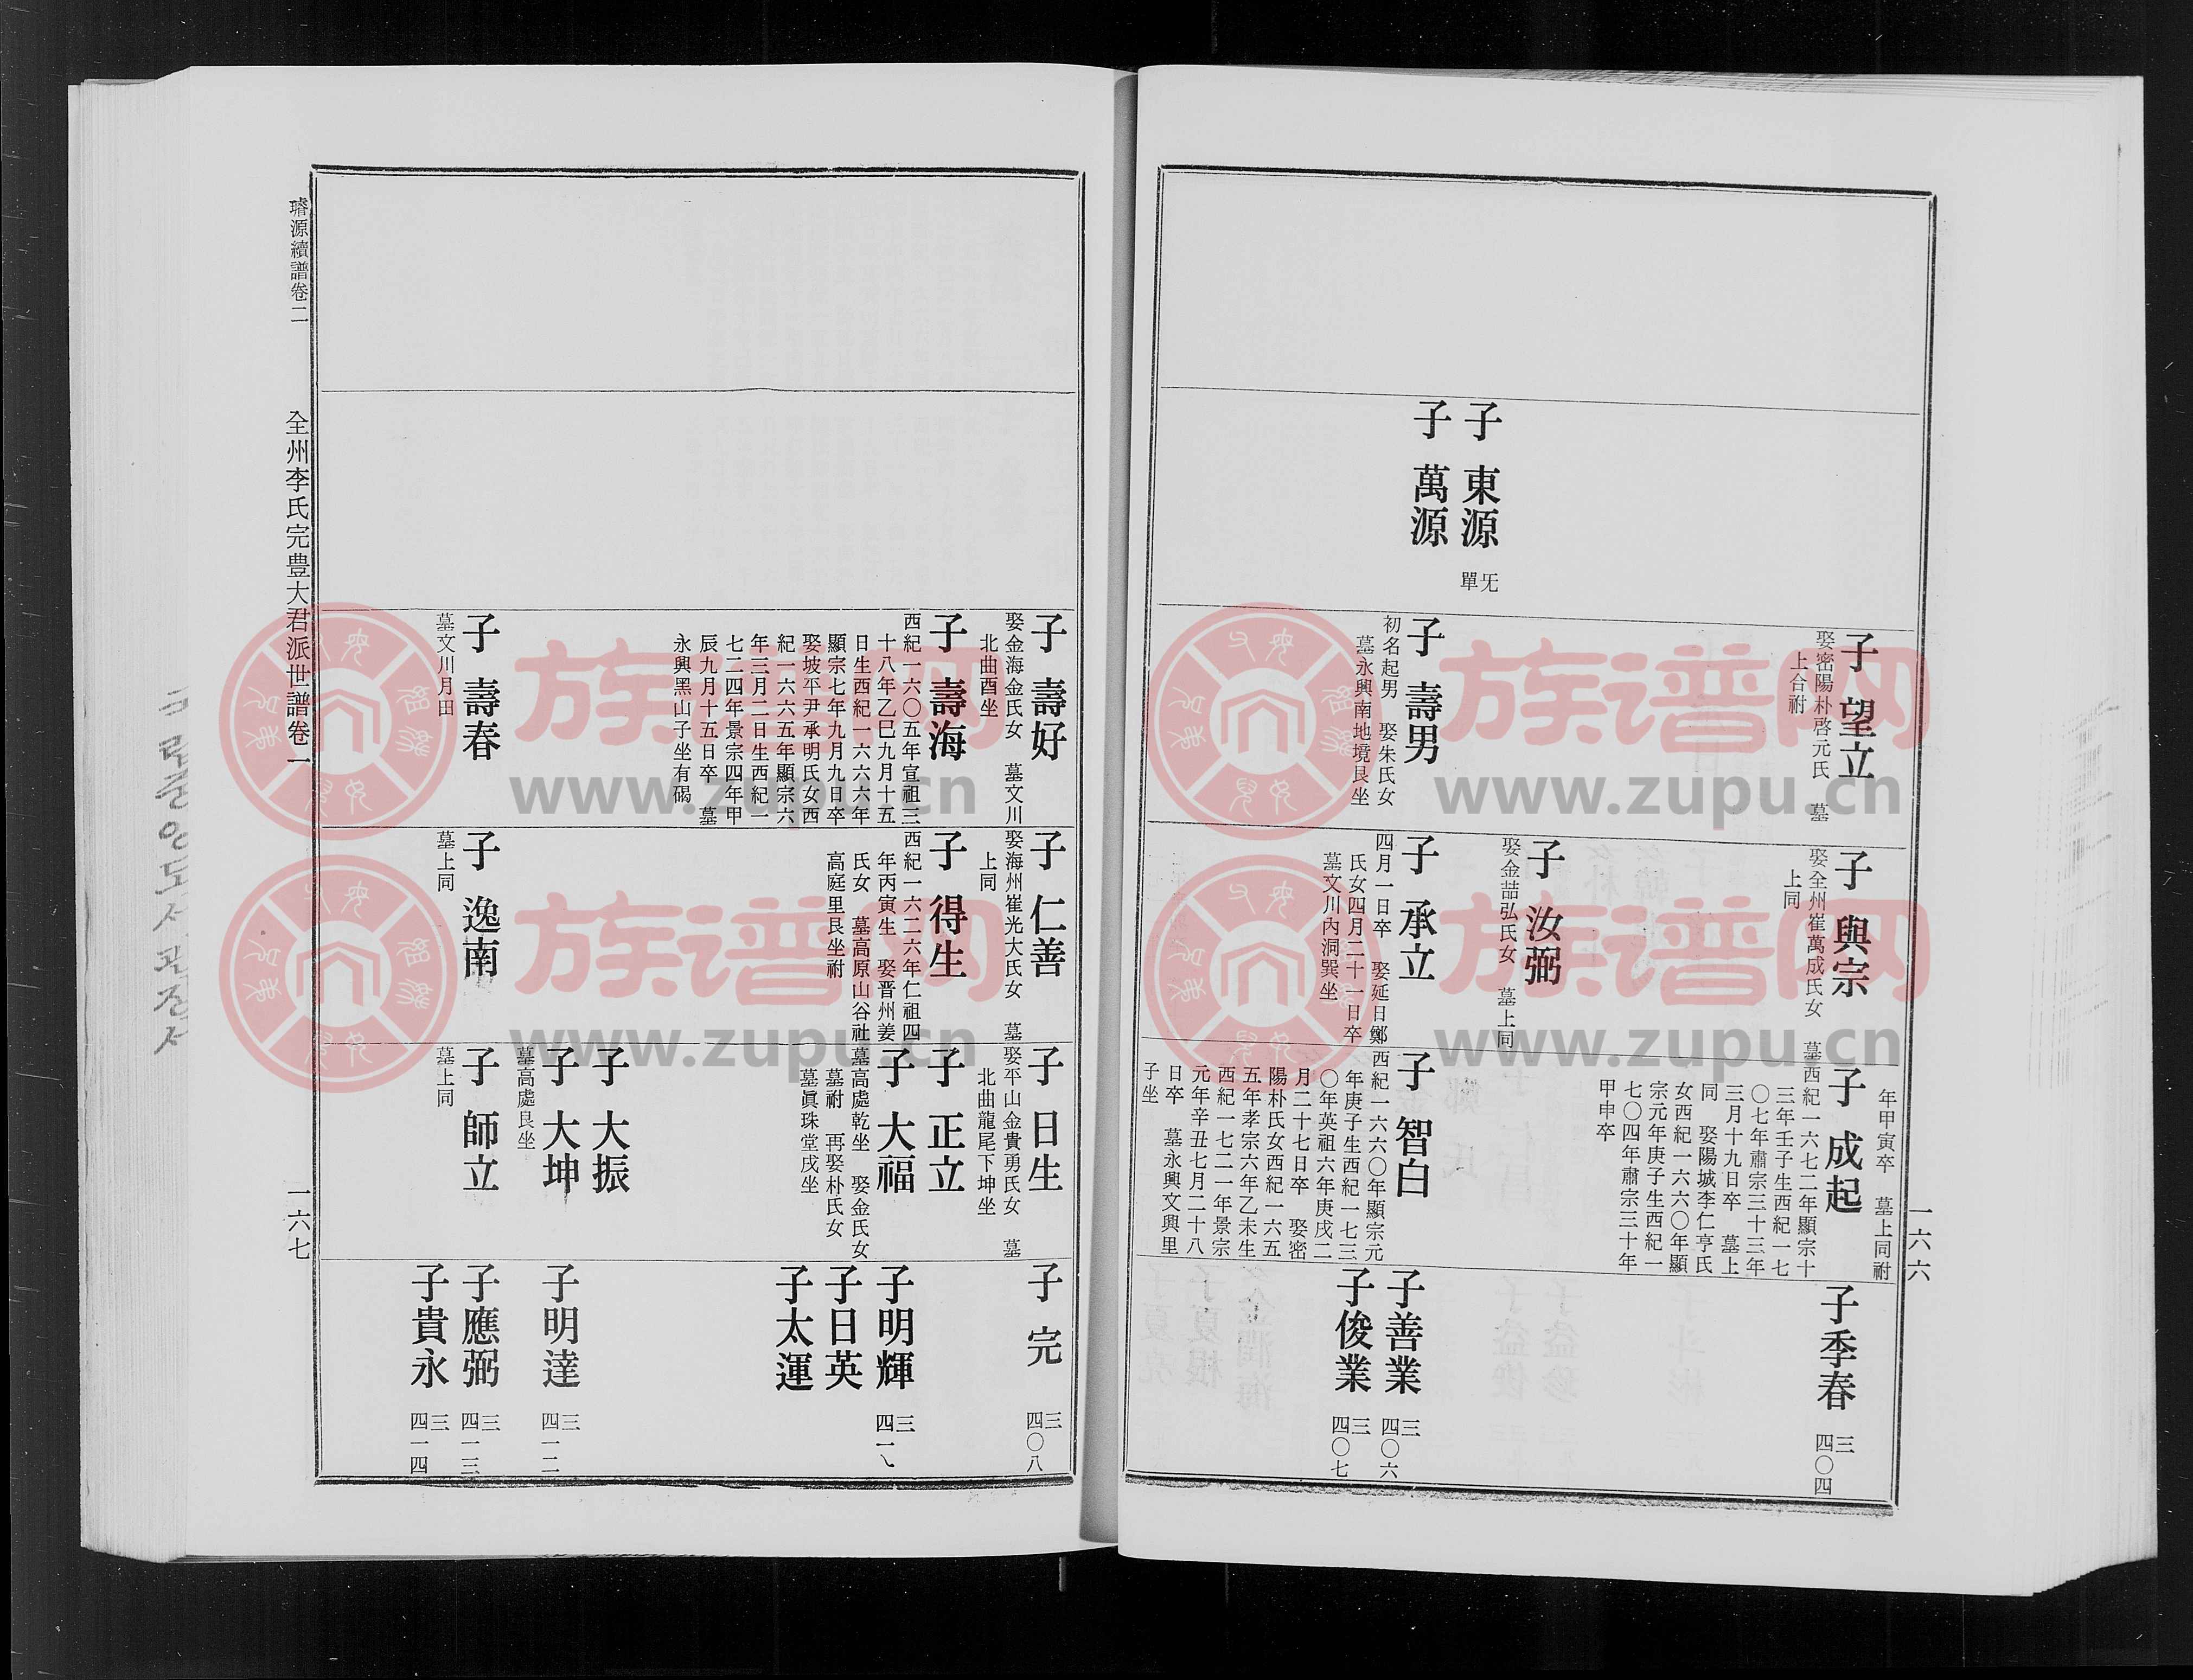 子 東源 旡
單
子 萬源
子 望立
娶密陽朴啓元氏 墓
上合祔
子 壽男
初名起男 娶朱氏女
墓永興南地境艮坐
子 與宗
娶全州崔萬成氏女 墓
上同
子 汝弼
娶金喆弘氏女 墓上同
子 承立
四月一日卒 娶延日鄭
氏女四月二十一日卒
墓文川內洞巽坐
年甲寅卒 墓上同祔
子 成起
西紀一六七二年顯宗十
三年壬子生西紀一七
〇七年肅宗三十三年
三月十九日卒 墓上
同 娶陽城李仁亨氏
女西紀一六六〇年顯
宗元年庚子生西紀一
七〇四年肅宗三十年
甲申卒
子 智白
西紀一六六〇年顯宗元
年庚子生西紀一七三
〇年英祖六年庚戌二
月二十七日卒 娶密
陽朴氏女西紀一六五
五年孝宗六年乙未生
西紀一七二一年景宗
元年辛丑七月二十八
日卒 墓永興文興里
子坐
子季春 三
四〇四
子善業 三
四〇六
子俊業 三
四〇七
一六六
子 壽好
娶金海金氏女 墓文川
北曲酉坐
子 壽海
西紀一六〇五年宣祖三
十八年乙巳九月十五
日生西紀一六六六年
顯宗七年九月九日卒
娶坡平尹承明氏女西
紀一六六五年顯宗六
年三月二日生西紀一
七二四年景宗四年甲
辰九月十五日卒 墓
永興黑山子坐有碣
子 壽春
墓文川月田
子 仁善
娶海州崔光大氏女 墓
上同
子 得生
西紀一六二六年仁祖四
年丙寅生 娶晋州姜
氏女 墓高原山谷社
高庭里艮坐祔
子 逸南
墓上同
子 日生
娶平山金貴勇氏女 墓
北曲龍尾下坤坐
子 正立
子 大福
墓高處乾坐 娶金氏女
墓祔 再娶朴氏女
墓眞珠堂戌坐
子 大振
子 大坤
墓高處艮坐
子 師立
墓上同
子 完 三
四〇八
子明輝 三
子日英
子太運
子明達 三
四一二
子應弼 三
四一三
子貴永 三
四一四
璿源續譜卷二
全州李氏完豊大君派世譜卷一
一六七
族谱网
www.zupu.cn
族谱网
www.zupu.cn
族谱网
www.zupu.cn
族谱网
www.zupu.cn